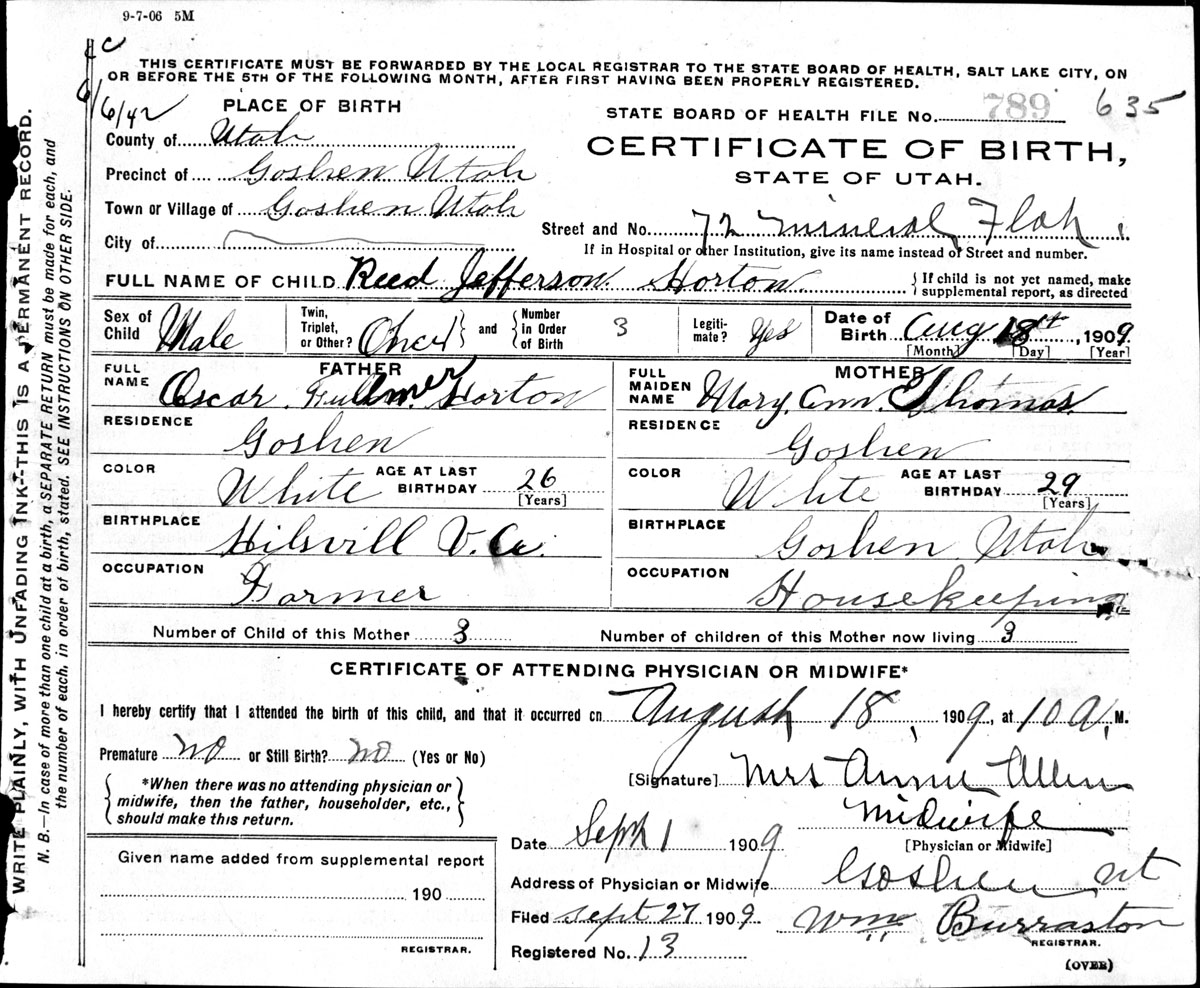 9-7-06 5M
THIS CERTIFICATE MUST BE FORWARDED BY THE LOCAL REGISTRAR TO THE STATE BOARD OF HEALTH, SALT LAKE CITY, ON
OR BEFORE THE 5TH OF THE FOLLOWING MONTH, AFTER FIRST HAVING BEEN PROPERLY REGISTERED.
6/6/42
PLACE OF BIRTH
STATE BOARD OF HEALTH FILE No. 789 635
County of Utah
CERTIFICATE OF BIRTH,
Precinct of Goshen Utah
STATE OF UTAH.
Town or Village of Goshen Utah
Street and No. 72 Mineral Flat
City of
If in Hospital or other Institution, give its name instead of Street and number.
FULL NAME OF CHILD Reed Jefferson Horton
{ If child is not yet named, make
supplemental report, as directed
Sex of Child Male
Twin, Triplet, or Other?
and
Number in Order of Birth 3
Legiti- mate? Yes
Date of Birth Aug 18th, 1909.
[Month] [Day] [Year]
FATHER
FULL NAME Oscar Fullmer Horton
RESIDENCE
Goshen
COLOR White
AGE AT LAST BIRTHDAY 26
[Years]
BIRTHPLACE Hilsvill V.a.
OCCUPATION Farmer
MOTHER
FULL MAIDEN NAME Mary Ann Thomas
RESIDENCE
Goshen
COLOR White
AGE AT LAST BIRTHDAY 29
[Years]
BIRTHPLACE Goshen Utah
OCCUPATION Housekeeping
Number of Child of this Mother 3
Number of children of this Mother now living 3
CERTIFICATE OF ATTENDING PHYSICIAN OR MIDWIFE*
I hereby certify that I attended the birth of this child, and that it occurred on August 18, 1909, at 10 a. M.
Premature no or Still Birth? no (Yes or No)
*When there was no attending physician or
midwife, then the father, householder, etc.,
should make this return.
[Signature] Mrs Annie Allen
Midwife
[Physician or Midwife]
Date Sept 1 1909
Address of Physician or Midwife Goshen ut
Filed Sept 27 1909. Wm Burraston
REGISTRAR.
Registered No. 13
(OVER)
Given name added from supplemental report
190
REGISTRAR.
WRITE PLAINLY, WITH UNFADING INK-THIS IS A PERMANENT RECORD.
N. B.—In case of more than one child at a birth, a SEPARATE RETURN must be made for each, and
the number of each, in order of birth, stated. SEE INSTRUCTIONS ON OTHER SIDE.